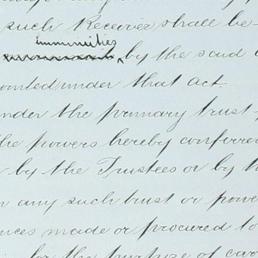 such Receiver shall be
immunities
by the said
under that act.
under the primary trust
the powers hereby conferred
by the Trustees or by
any such trust or power
made or procured to
for the purpose of